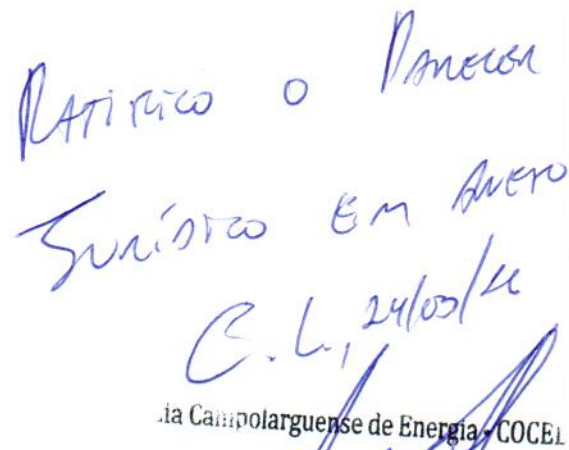 Ratifico o Parecer
Jurídico em anexo
C.L., 24/03/
ia Campolarguense de Energia - COCEL